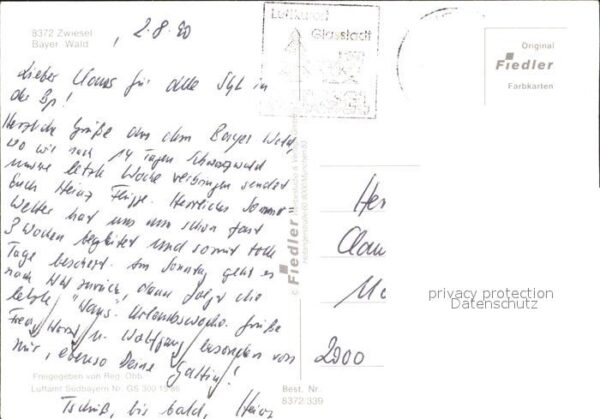 8372 Zwiesel
Bayer. Wald
, 2.8.90
Luftkurort
Glasstadt
Original
Fiedler
Farbkarten
Lieber Claus für die
der
Herzliche Grüße aus dem Bayer Wald,
wo wir nach 14 Tagen Schwarzwald
unsere letzte Woche verbringen sendet
Euch Heinz Herrliches Sommer
Wetter hat uns nun schon fast
3 Wochen begleitet und somit tolle
Tage beschert. Am Sonntag geht es
nach zurück, dann folgt die
letzte "Haus"-Urlaubswoche. Grüße
Frau u. Wolfgang besonders von
mir, ebenso Deine Gattin!
Tschüß, bis bald, Heinz
Freigegeben von Reg. Obb.
Luftamt Südbayern Nr. GS 300
© Fiedler
Her
Clau
2900
privacy protection
Datenschutz
Best. Nr.
8372/339